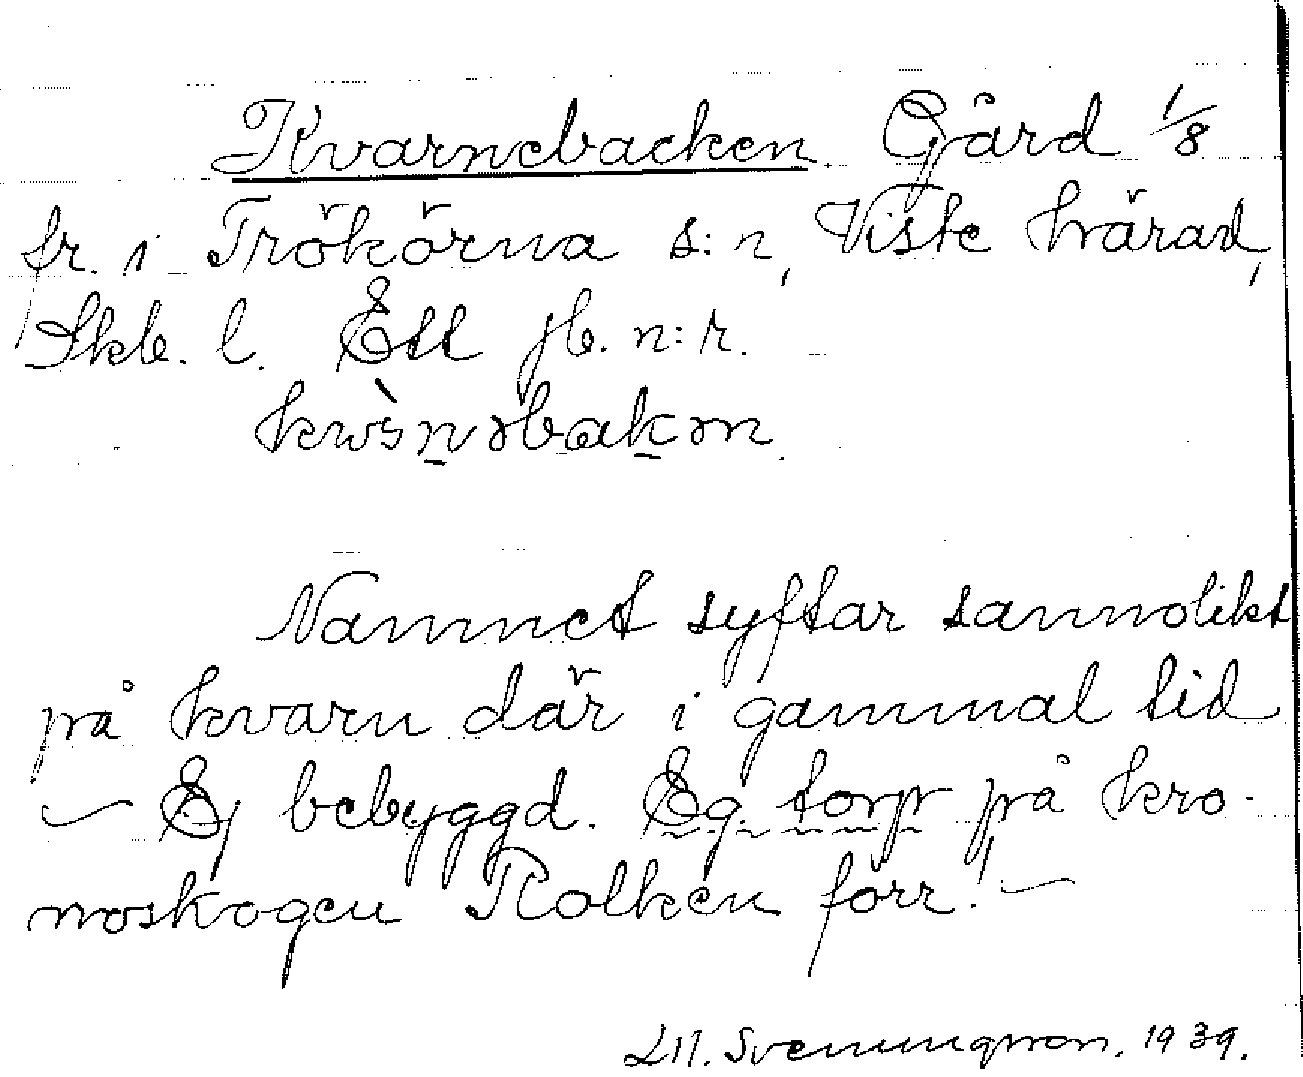 Kvarnebacken. Gård 1/8
fr. i Trökörna s:n, Viste härad,
Skb. l. Ett jb. n:r.
Namnet syftar sannolikt
på kvarn där i gammal tid
– Ej bebyggd. Eg. torp på kro-
noskogen Kolken förr! –
Svenungsson. 1939.